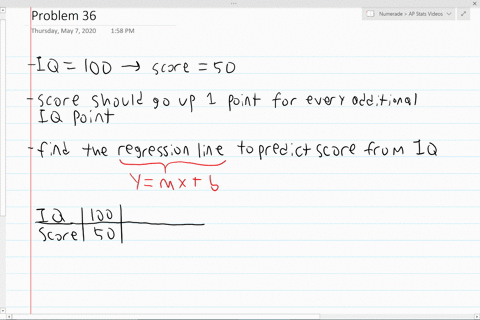 Problem 36
Thursday, May 7, 2020 1:58 PM
Numerade > AP Stats Videos
- IQ = 100 → score = 50
- score should go up 1 point for every additional
IQ point
- find the regression line to predict score from IQ
y = mx + b
IQ | 100 |
Score | 50 |